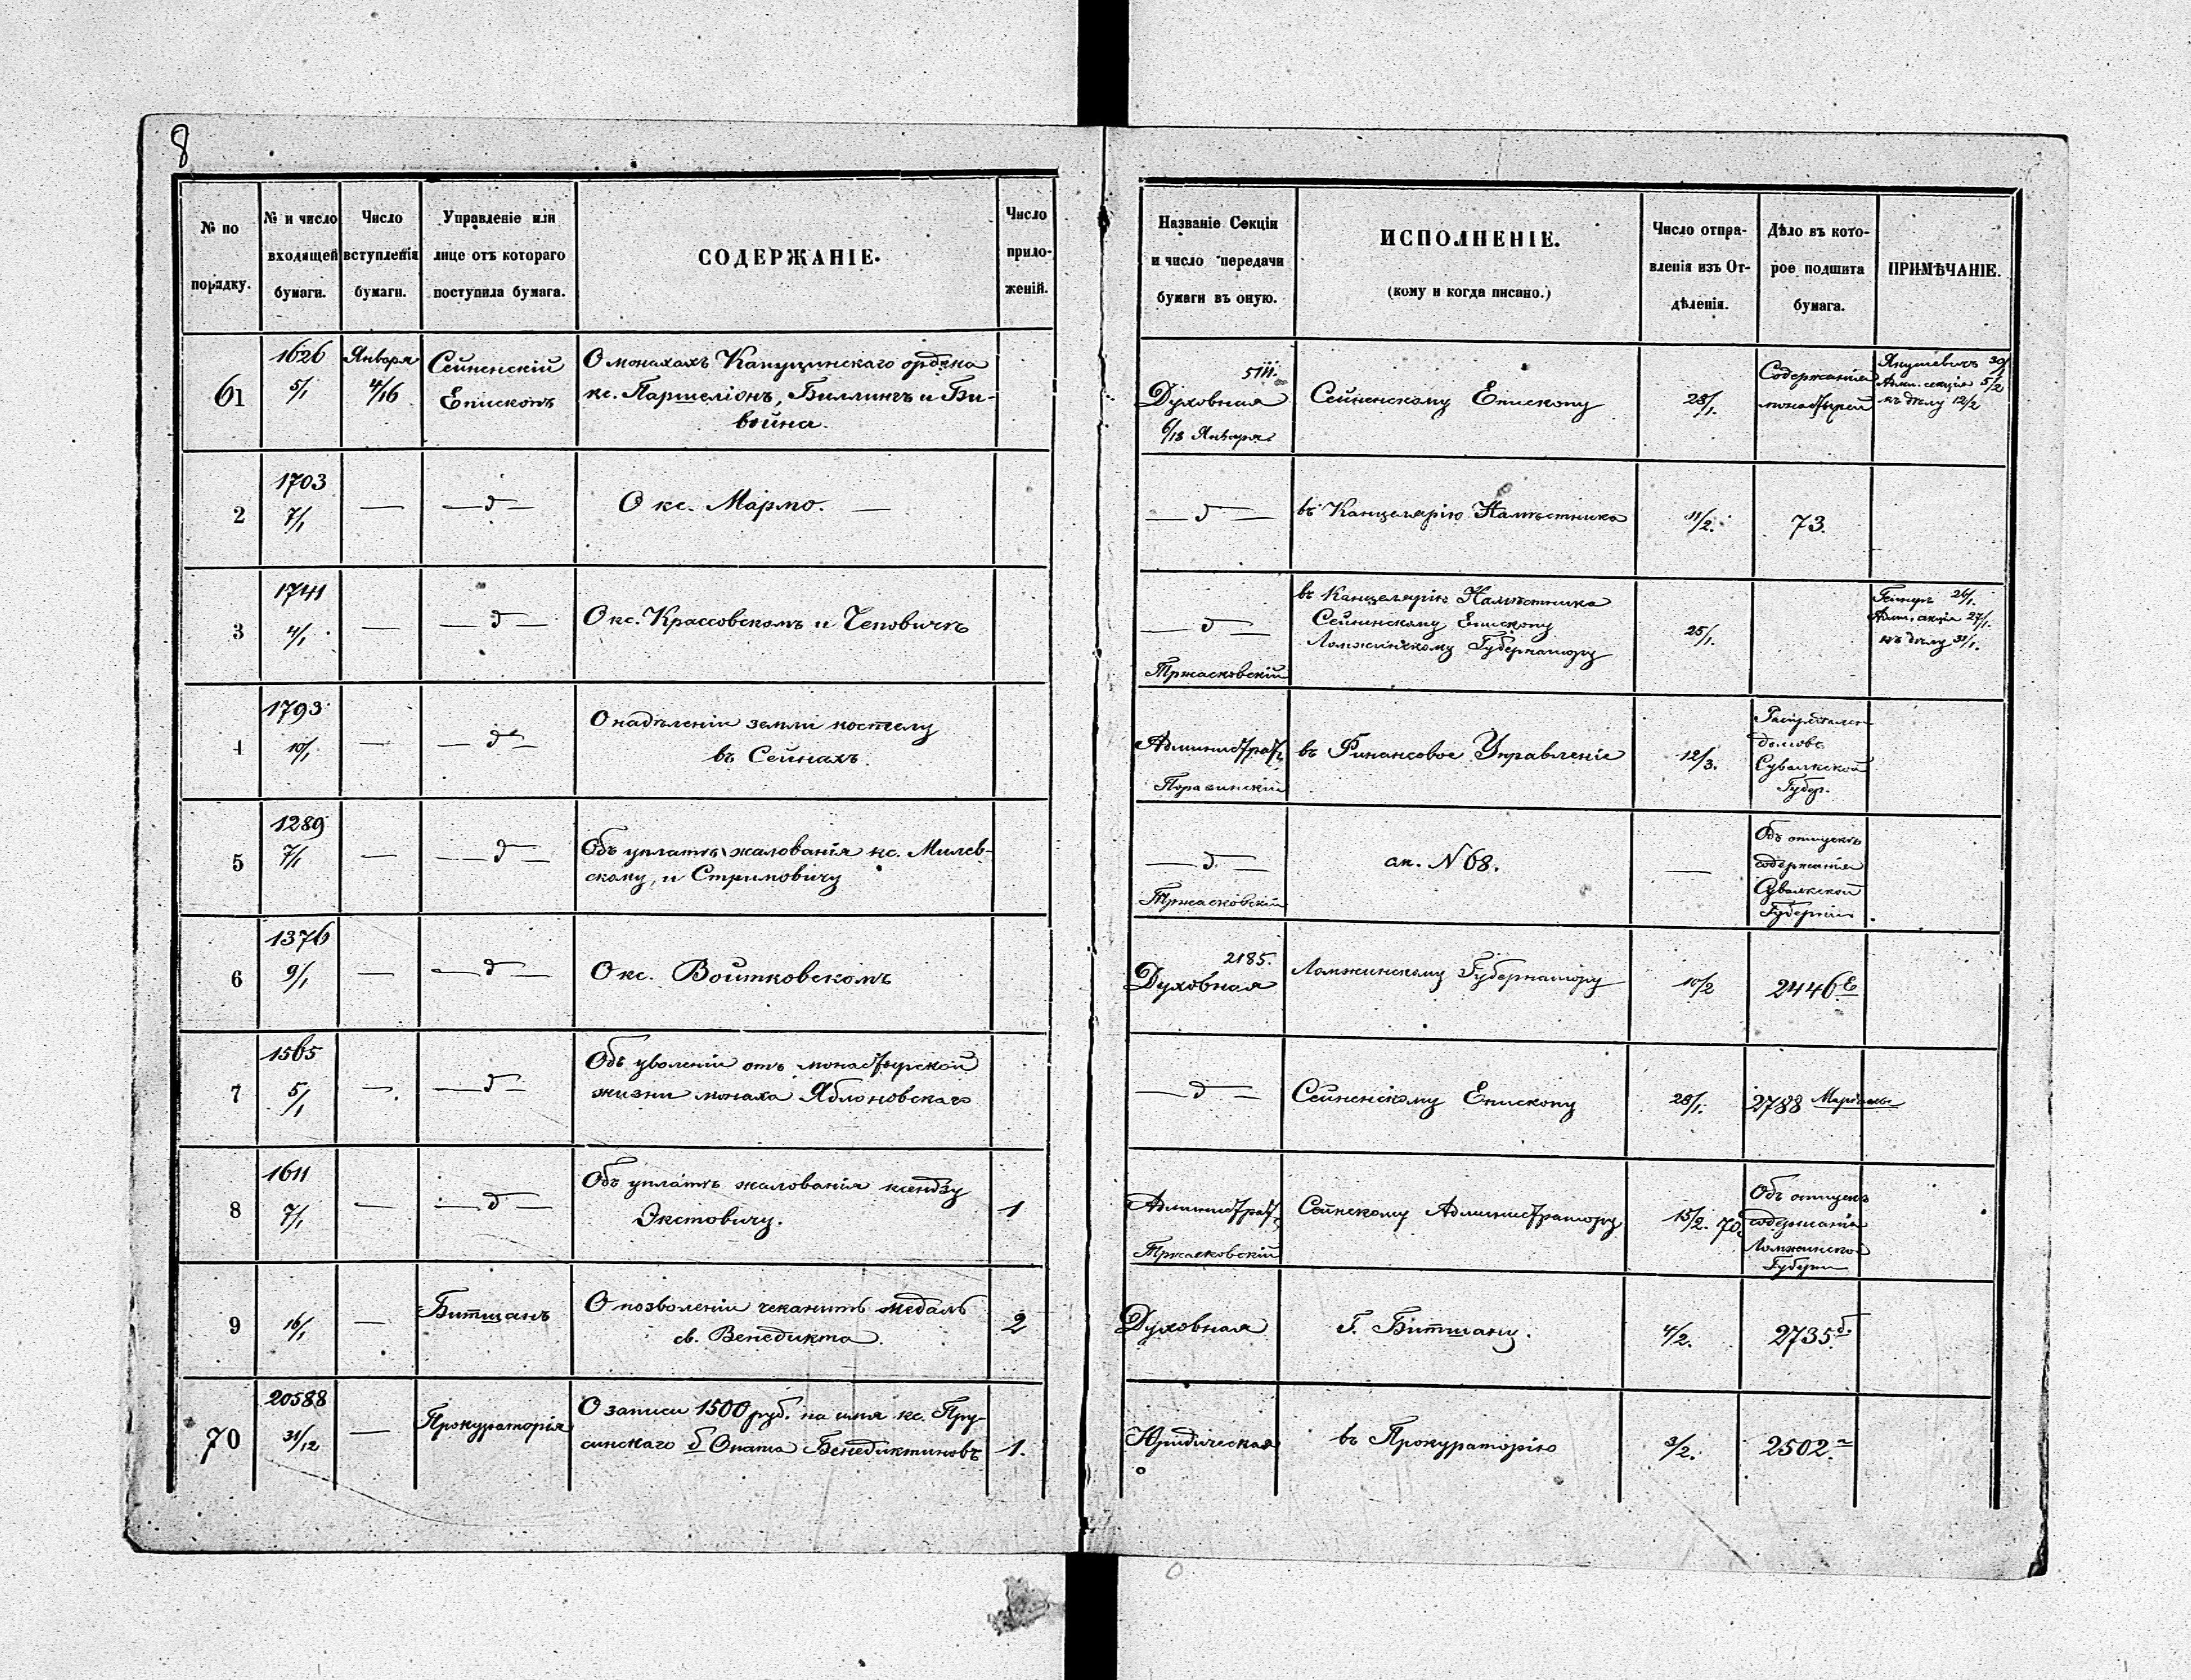 8
№ по порядку.
№ и число входящей бумаги.
Число вступленія бумаги.
Управленіе или лице отъ котораго поступила бумага.
СОДЕРЖАНІЕ.
Число приложеній.
Названіе Секціи и число передачи бумаги въ оную.
ИСПОЛНЕНІЕ.
(кому и когда писано.)
Число отправленія изъ Отдѣленія.
Дѣло въ которое подшита бумага.
ПРИМѢЧАНІЕ.
61
1626
5/1
Января
4/16
Сейненскій
Епископъ
О монахахъ Капуцинскаго ордена
кс. Паршеліонъ, Биллингъ и Би-
война.
Духовная
6/18 Января
Сейненскому Епископу
28/1.
Содержаніе
монастырей
Адм. секція 5/2
къ дѣлу 12/2
2
1703
7/1
— д —
О кс. Мармо. —
— д —
въ Канцелярію Намѣстника
11/2.
73.
3
1741
4/1.
— д —
О кс. Крассовскомъ и Чеповичѣ
— д —
Тржасковскій
въ Канцелярію Намѣстника
Сейненскому Епископу
Ломжинскому Губернатору
25/1.
26/1.
Адм. секція 27/1.
къ дѣлу 31/1.
4
1793
10/1
— д —
О надѣленіи земли костелу
въ Сейнахъ.
Администрат.
въ Финансовое Управленіе
12/3.
домовъ
Сувалкской
Губер.
5
1289
7/1
— д —
Объ уплатѣ жалованія кс. Милев-
скому, и Стримовичу
— д —
Тржасковскій
ан. N 68.
—
Объ отпускѣ
содержанія
Сувалкской
Губерніи.
6
1376
9/1
— д —
О кс. Войтковскомъ
2185.
Духовная
Ломжинскому Губернатору
10/2
2446 Е
7
1565
5/1
— д —
Объ уволеніи отъ монастырской
жизни монаха Яблоновскаго
— д —
Сейненскому Епископу
28/1.
2788
8
1611
7/1
— д —
Объ уплатѣ жалованія ксендзу
Экстовичу.
1
Администрат.
Тржасковскій
Сейнскому Администратору
15/2.
70
Объ отпускѣ
содержанія
Ломжинской
Губерн
9
16/1
—
Битшанъ
О позволеніи чеканить медаль
св. Венедикта.
2
Духовная
Г. Битшану.
4/2.
2735 б.
70
20588
31/12
—
Прокураторія
О записи 1500 руб. на имя кс. Пру-
синскаго б Опата Бенедиктиновъ
1.
Юридическая
въ Прокураторію
3/2.
2502